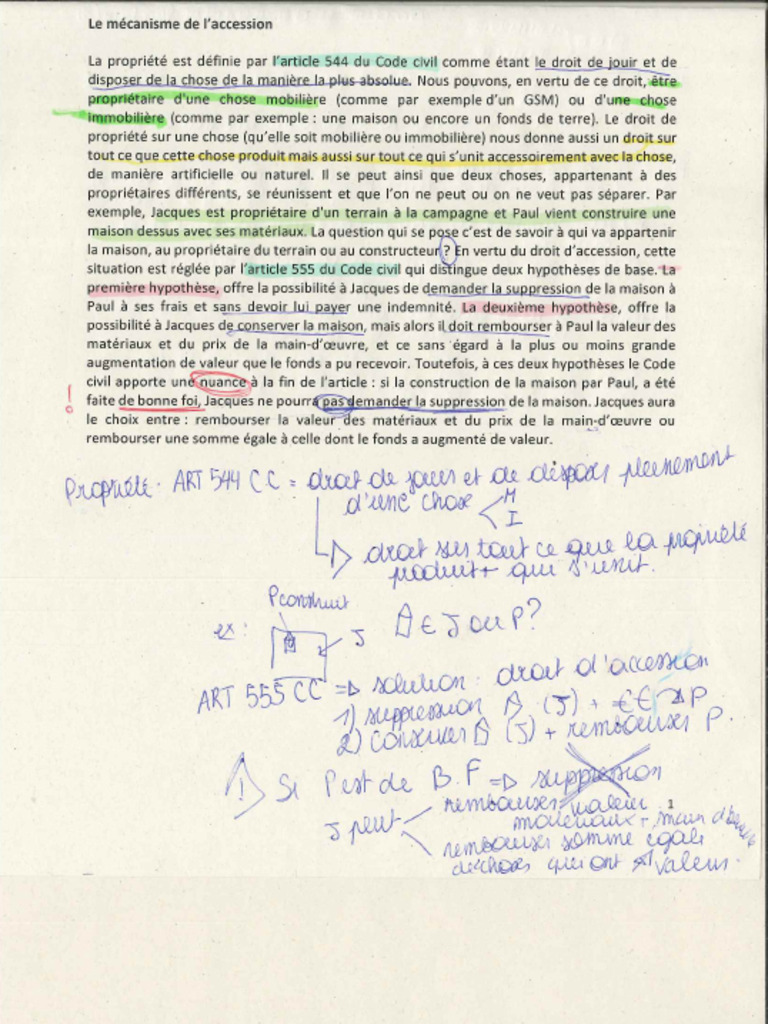 Le mécanisme de l'accession
La propriété est définie par l'article 544 du Code civil comme étant le droit de jouir et de
disposer de la chose de la manière la plus absolue. Nous pouvons, en vertu de ce droit, être
propriétaire d'une chose mobilière (comme par exemple d'un GSM) ou d'une chose
immobilière (comme par exemple : une maison ou encore un fonds de terre). Le droit de
propriété sur une chose (qu'elle soit mobilière ou immobilière) nous donne aussi un droit sur
tout ce que cette chose produit mais aussi sur tout ce qui s'unit accessoirement avec la chose,
de manière artificielle ou naturel. Il se peut ainsi que deux choses, appartenant à des
propriétaires différents, se réunissent et que l'on ne peut ou on ne veut pas séparer. Par
exemple, Jacques est propriétaire d'un terrain à la campagne et Paul vient construire une
maison dessus avec ses matériaux. La question qui se pose c'est de savoir à qui va appartenir
la maison, au propriétaire du terrain ou au constructeur ? En vertu du droit d'accession, cette
situation est réglée par l'article 555 du Code civil qui distingue deux hypothèses de base. La
première hypothèse, offre la possibilité à Jacques de demander la suppression de la maison à
Paul à ses frais et sans devoir lui payer une indemnité. La deuxième hypothèse, offre la
possibilité à Jacques de conserver la maison, mais alors il doit rembourser à Paul la valeur des
matériaux et du prix de la main-d'œuvre, et ce sans égard à la plus ou moins grande
augmentation de valeur que le fonds a pu recevoir. Toutefois, à ces deux hypothèses le Code
civil apporte une nuance à la fin de l'article : si la construction de la maison par Paul, a été
! faite de bonne foi, Jacques ne pourra pas demander la suppression de la maison. Jacques aura
le choix entre : rembourser la valeur des matériaux et du prix de la main-d'œuvre ou
rembourser une somme égale à celle dont le fonds a augmenté de valeur.
Propriété. ART 544 CC = droit de jouir et de disposer pleinement
d'une chose M
I
droit sur tout ce que la propriété
produit + qui s'unit.
P construit
ex : J € J ou P?
ART 555 CC => solution : droit d'accession
1) suppression (J) + €€ P
2) conserver (J) + rembourser P.
! Si P est de B.F => suppression
J peut rembourser valeur 1
matériaux + main d'œuvre
rembourser somme égale
choses qui ont valeur.